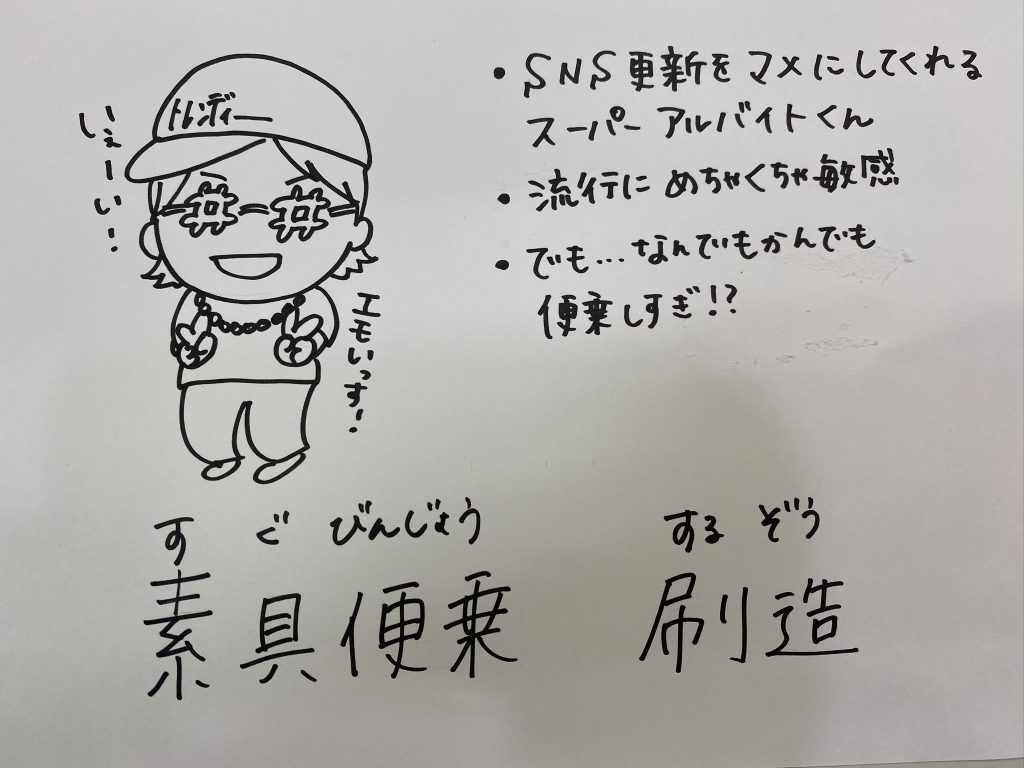 トレンディー
いぇーい!
エモいっす!
・SNS更新をマメにしてくれる
スーパーアルバイトくん
・流行にめちゃくちゃ敏感
・でも...なんでもかんでも
便乗しすぎ!?
す ぐ びんじょう するぞう
素具便乗 刷造